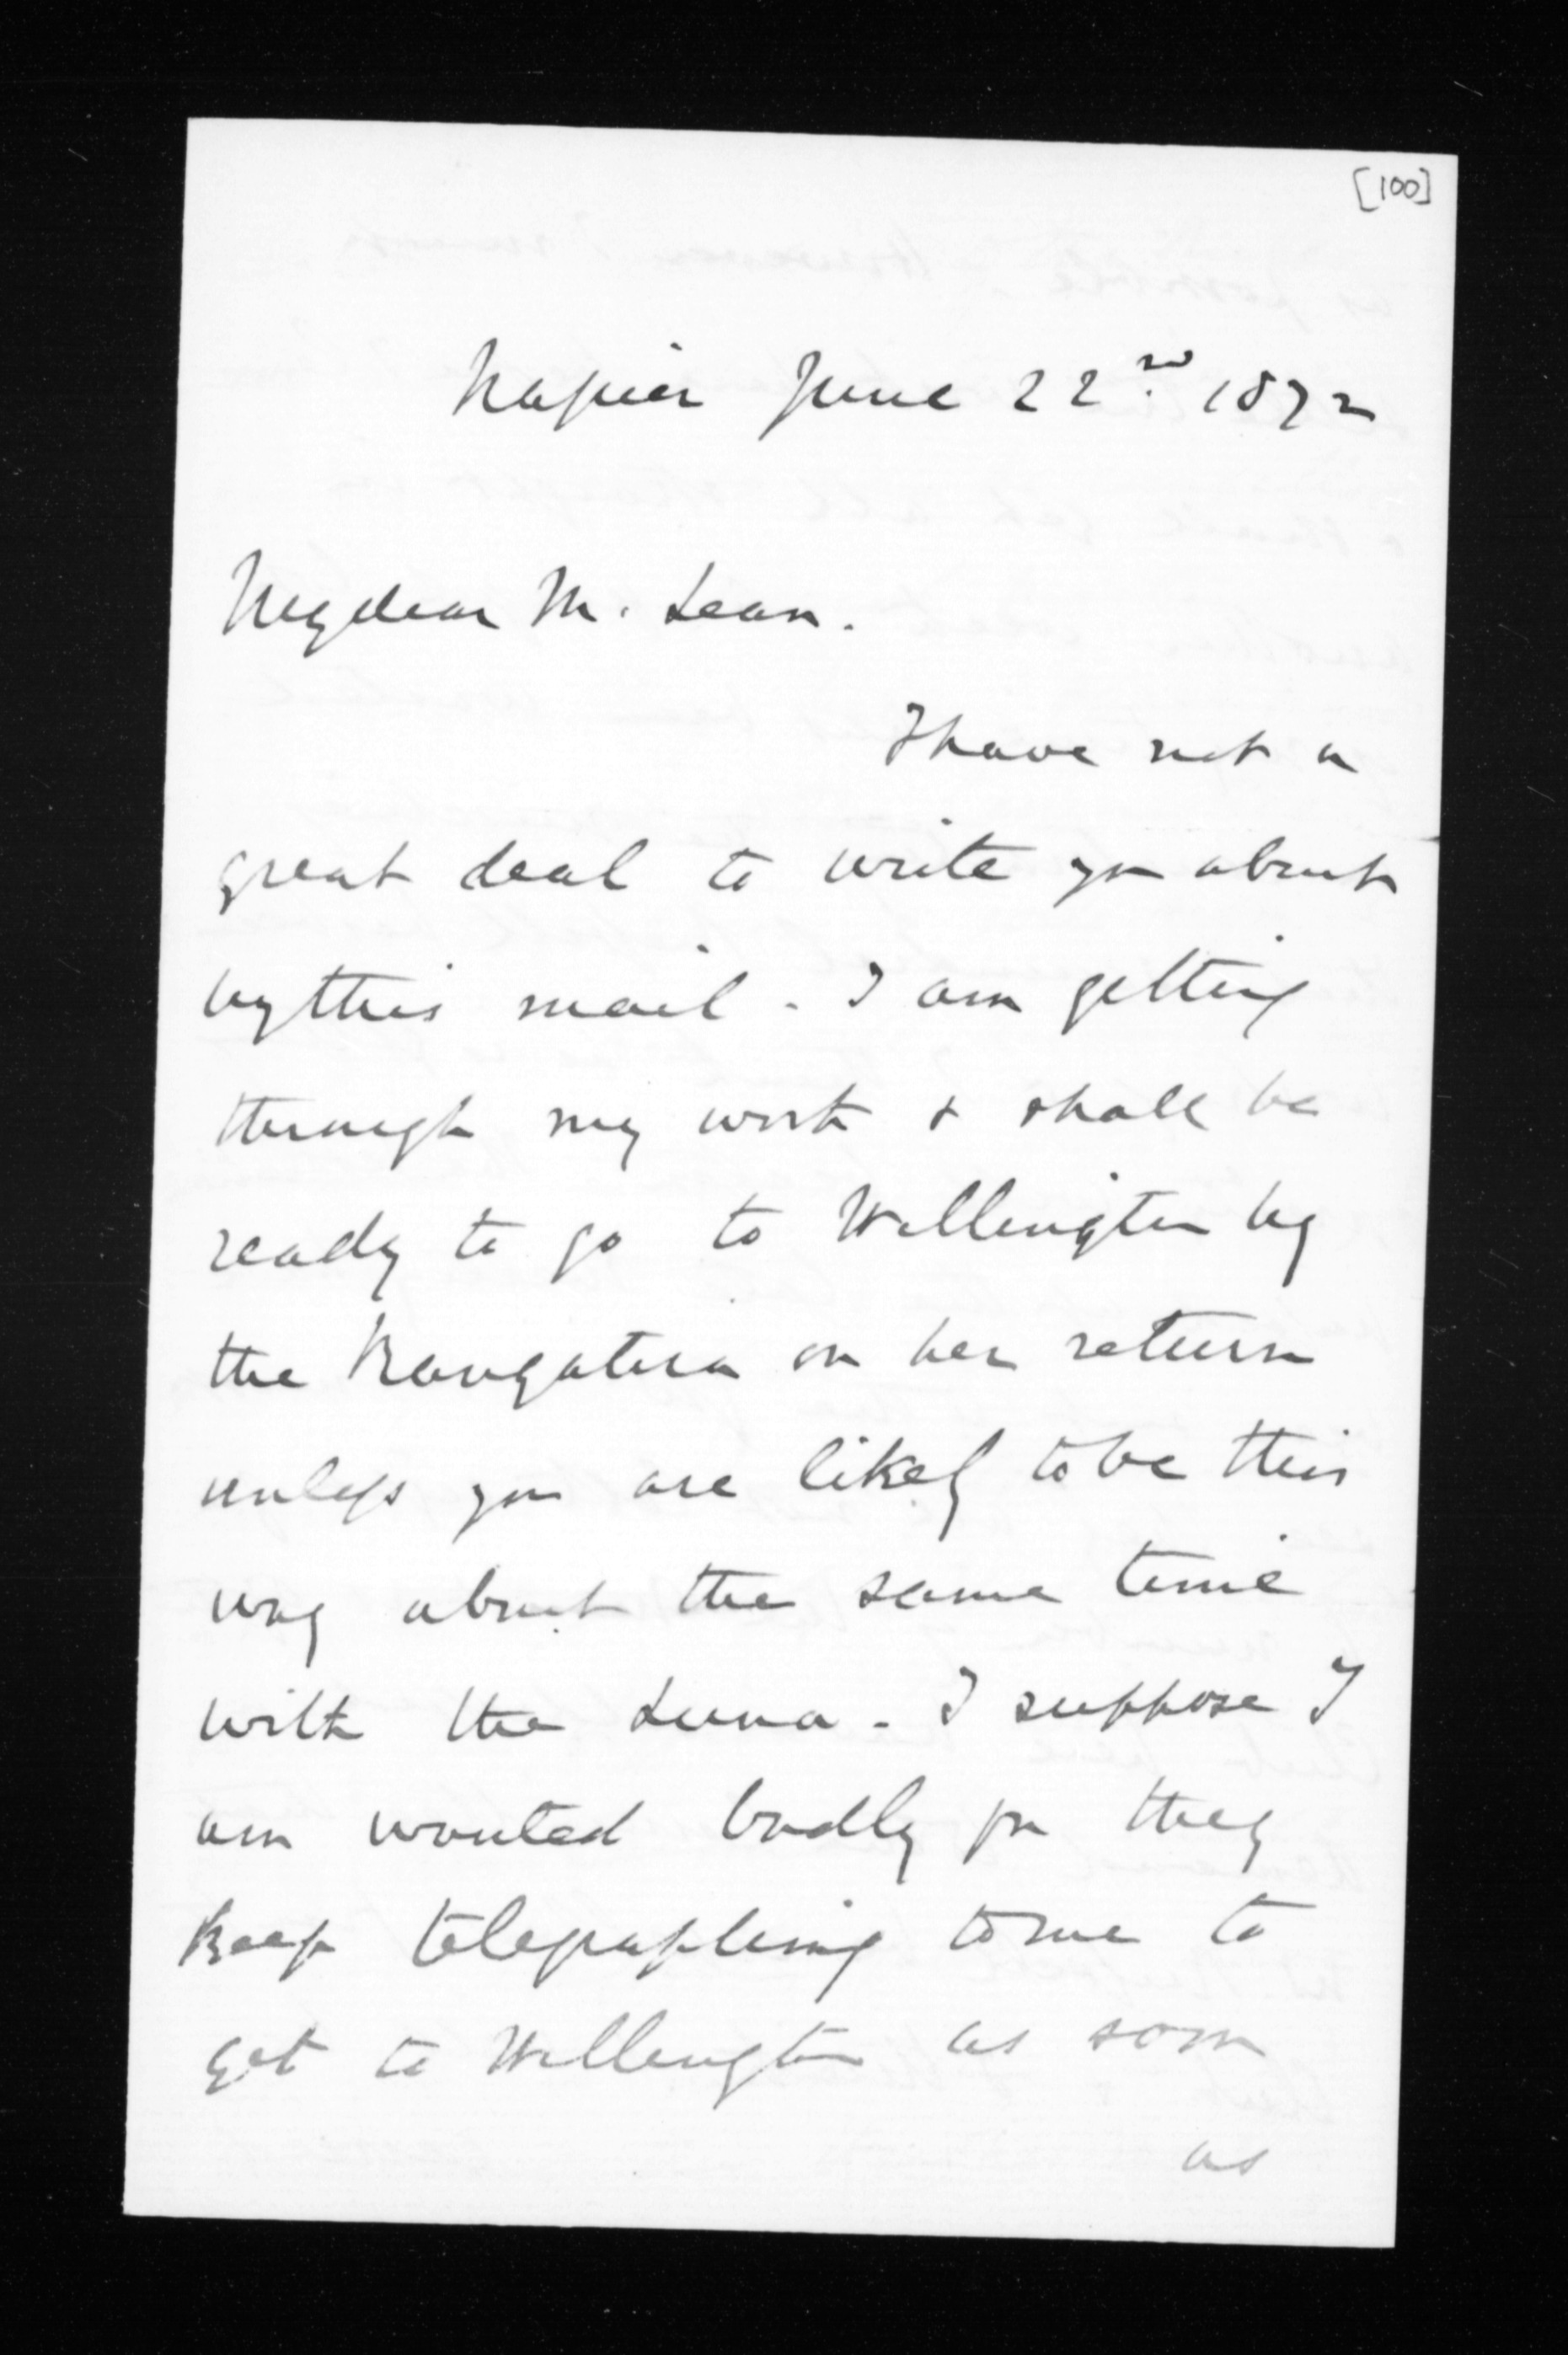 [100]
Napier June 22nd. 1872
My dear M. Lean.
I have not a
great deal to write you about
by this mail. I am getting
through my work & shall be
ready to go to Wellington by
the Rangatira on her return
unless you are likely to be this
way about the same time
with the Luna. I suppose I
am wanted badly for they
keep telegraphing to me to
get to Wellington as soon
as